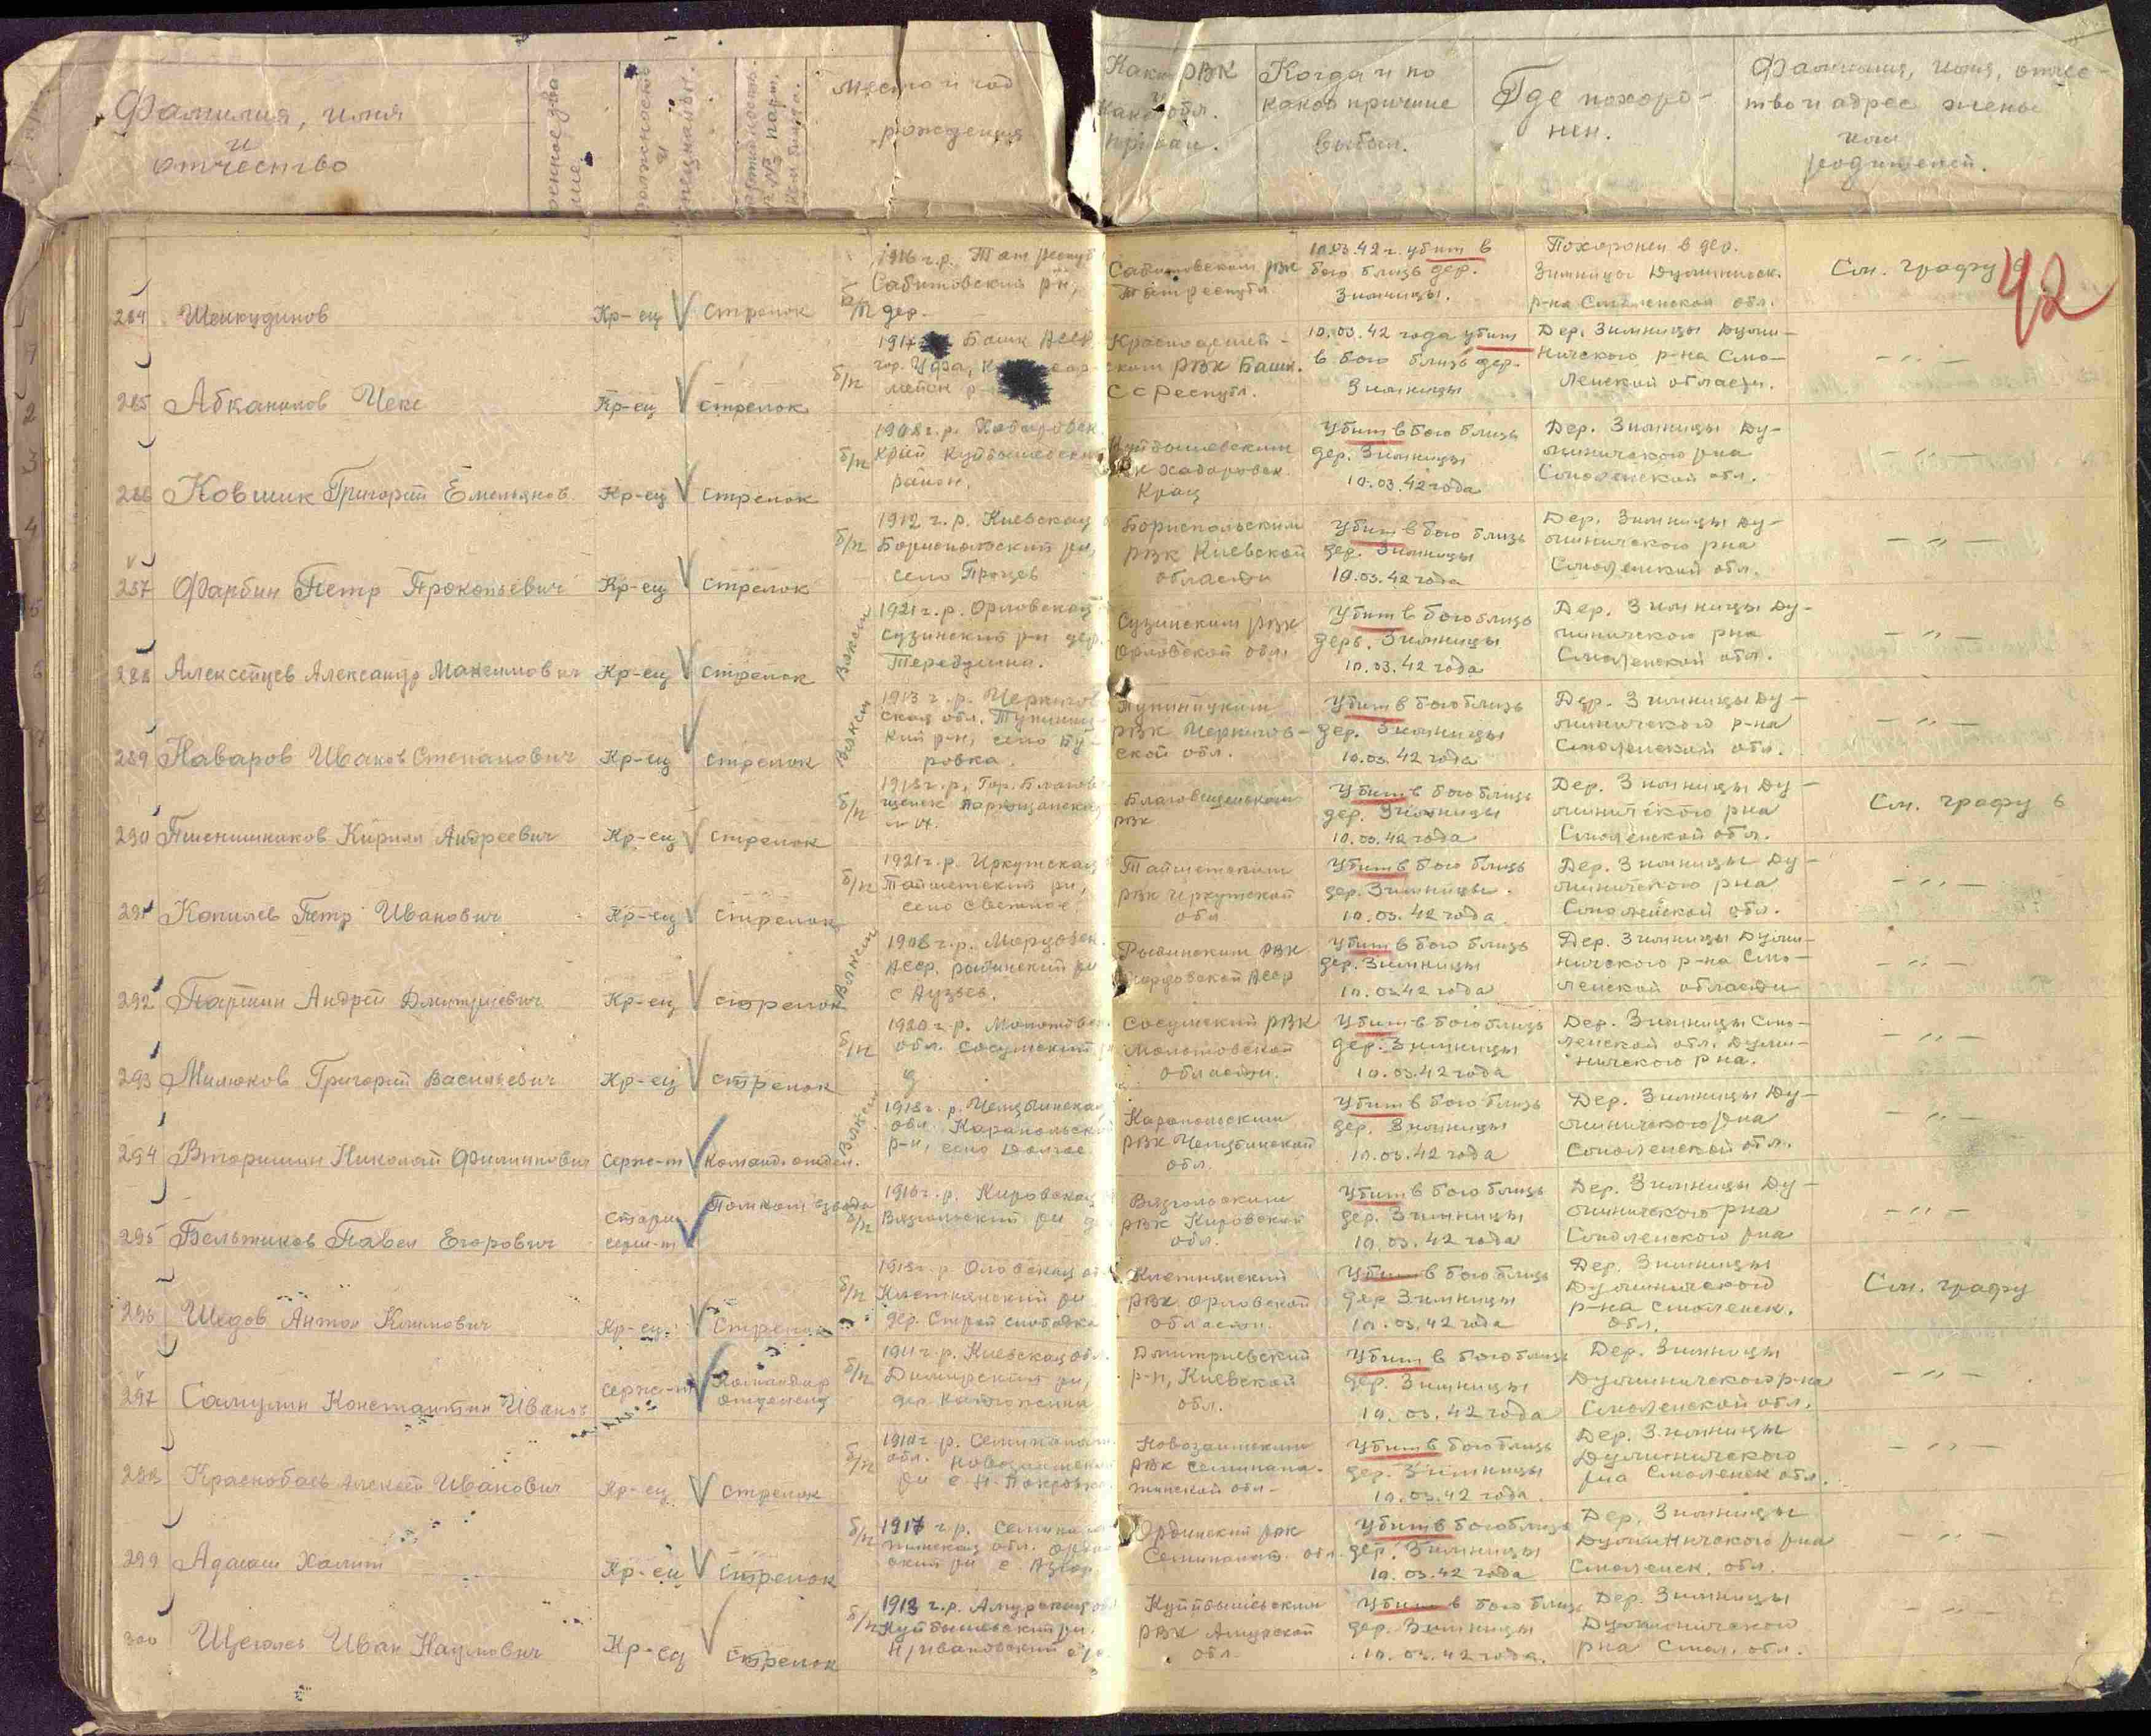 Фамилия, имя
и
отчество
военное звание
должность
и
специальн.
место и год
рождения
Каким РВК
и
какой обл.
призван.
Когда и по
какой причине
выбыл.
Где похоро-
нен.
Фамилия, имя, отчес-
тво и адрес жены
или
родителей.
42
284 Шенкудинов Кр-ец стрелок б/п
1916 г.р. Тат респуб
Сабинтовский рн,
дер.
10.03.42 г. убит в
бою близь дер.
Зимницы.
Похоронен в дер.
Зимницы Думиническ.
р-на Смоленской обл.
См. графу 6
285 Абканимов Кр-ец стрелок б/п
Башк АССР
гор. Уфа,
РВК Башк.
С С Республ.
10.03.42 года убит
в бою близь дер.
Зимницы
Дер. Зимницы Думи-
ничского р-на Смо-
ленской области.
— „ —
286 Ковшик Григорий Емельянов. Кр-ец стрелок б/п
1908 г.р. Хабаровск.
край Куйбышевский
район.
Куйбышевским
Хабаровск.
края
Убит в бою близь
дер. Зимницы
10.03.42 года
Дер. Зимницы Ду-
миничского рна
Смоленской обл.
— „ —
287 Фарбин Петр Прокопьевич Кр-ец стрелок б/п
1912 г.р. Киевская
Бориспольский рн,
село Процев
Бориспольским
РВК Киевской
области
Убит в бою близь
дер. Зимницы
10.03.42 года
Дер. Зимницы Ду-
миничского рна
Смоленской обл.
— „ —
288 Алексейцев Александр Максимович Кр-ец стрелок
1921 г.р. Орловская
Сузинский р-н дер.
Сузинским РВК
Орловской обл.
Убит в бою близь
дерв. Зимницы
10.03.42 года
Дер. Зимницы Ду-
миничского рна
Смоленской обл.
— „ —
289 Наваров Иванов Степанович Кр-ец стрелок
1913 г.р. Чернигов
ская обл.
кий р-н, село Бу-
ровка.
РВК Чернигов-
ской обл.
Убит в бою близь
дер. Зимницы
10.03.42 года
Дер. Зимницы Ду-
миничского р-на
Смоленской обл.
— „ —
290 Пшенишников Кирилл Андреевич Кр-ец стрелок б/п
1918 г.р. Гор. Благове-
щенск
Благовещенским
РВК
Убит в бою близь
дер. Зимницы
10.03.42 года
Дер. Зимницы Ду-
миничского рна
Смоленской обл.
См. графу 6
291 Копилев Петр Иванович Кр-ец стрелок б/п
1921 г.р. Иркутская
Тайшетский рн,
село
Тайшетским
РВК Иркутской
обл
Убит в бою близь
дер. Зимницы.
10.03.42 года
Дер. Зимницы Ду-
миничского рна
Смоленской обл.
— „ —
292 Паршин Андрей Дмитриевич Кр-ец стрелок
1908 г.р. Мордовск.
АССР. рыбинский рн
Рыбинским РВК
Мордовской АССР
Убит в бою близь
дер. Зимницы
10.03.42 года
Дер. Зимницы Думи-
ничского р-на Смо-
ленской области
— „ —
293 Милюков Григорий Васильевич Кр-ец стрелок б/п
1920 г.р. Молотовск.
обл. Сосумский
Сосумский РВК
Молотовской
области.
Убит в бою близь
дер. Зимницы
10.03.42 года
Дер. Зимницы Смо-
ленской обл. Думи-
ничского рна.
— „ —
294 Вторишин Николай Филиппович Серж-т Команд. отдел.
1918 г.р. Челябинская
обл. Карапольский
р-н, село Долгое
Карапольским
РВК Челябинской
обл.
Убит в бою близь
дер. Зимницы
10.03.42 года
Дер. Зимницы Ду-
миничского рна
Смоленской обл.
— „ —
295 Бельтиков Павел Егорович Старш серж-т Помком взвода б/п
1910 г.р. Кировская
Вязгольский рн
Вязгольским
РВК Кировской
обл.
Убит в бою близь
дер. Зимницы
10.03.42 года
Дер. Зимницы Ду-
миничского рна
Смоленского рна
— „ —
296 Шедов Антон Климович Кр-ец. Стрелок б/п
1918 г.р. Орловская об
Клетнянский рн
дер. Старой слободка
Клетнянский
РВК Орловской
области.
Убит в бою близь
дер Зимницы
10.03.42 года
Дер. Зимницы
Думиничского
р-на Смоленск.
обл.
См. графу
297 Самулин Константин Иванов Серж-т Командир отделения б/п
1911 г.р. Киевская обл.
Димирский рн,
дер.
Дмитриевский
р-н, Киевской
обл.
Убит в бою близь
дер. Зимницы
10.03.42 года
Дер. Зимницы
Думиничского р-на
Смоленской обл.
— „ —
298 Краснобаев Алексей Иванович Кр-ец стрелок б/п
1910 г.р. Семипалат.
обл. Новозаимский
рн с Н-Покровка
Новозаимским
РВК Семипала-
тинской обл-
Убит в бою близь
дер. Зимницы
10.03.42 года
Дер. Зимницы
Думиничского
рна Смоленск обл.
— „ —
299 Адагаш Халит Кр-ец стрелок б/п
1917 г.р. Семипала
тинская обл.
ский рн с.
Ординский рвк
Семипалат. обл.
Убит в бою близь
дер. Зимницы
10.03.42 года
Дер. Зимницы
Думиничского рна
Смоленск. обл.
— „ —
300 Щеголев Иван Наумович Кр-ец стрелок б/п
1913 г.р. Амурская обл
Куйбышевский рн.
Н/ивановский с/с
Куйбышевским
РВК Амурской
обл.
Убит в бою близь
дер. Зимницы
10.03.42 года.
Дер. Зимницы
Думиничской
рна Смол. обл.
— „ —